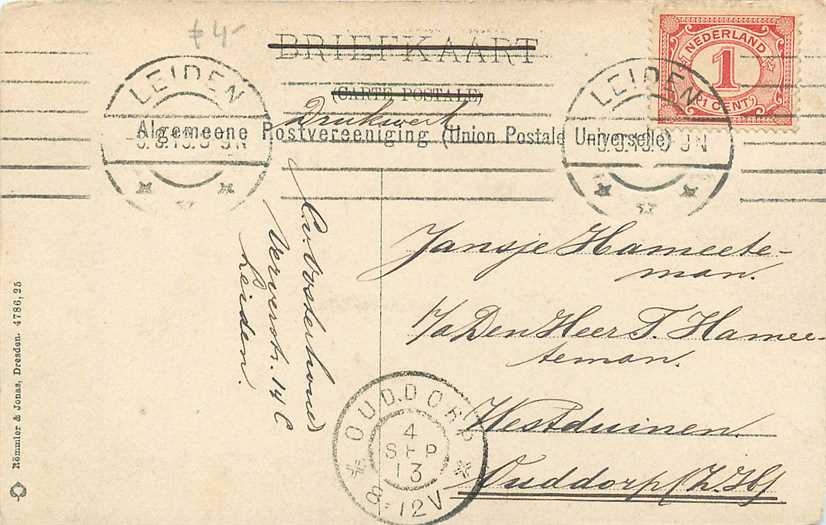 ƒ 4-
BRIEFKAART
(CARTE POSTALE)
Drukwerk
Algemeene Postvereeniging (Union Postale Universelle)
LEIDEN
LEIDEN
NEDERLAND
1
(1 CENT)
Jansje Hameete-
man.
p/a Den Heer T. Hamee-
teman.
Westduinen.
Ouddorp (Z.H.)
C. v. Oosterhout
Ververstr. 14 C
Leiden.
OUDDORP
4
SEP
13
8-12V
Römmler & Jonas, Dresden. 4786,25